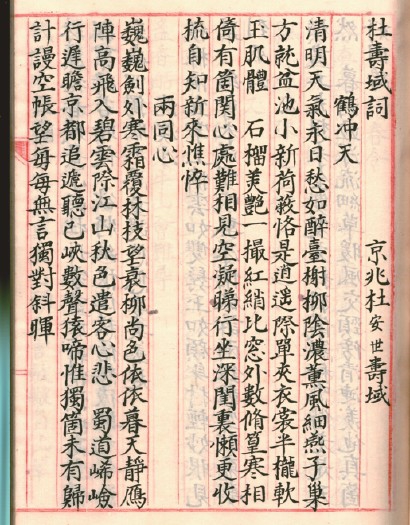 杜壽域詞
京兆杜安世壽域
鶴冲天
清明天氣永日愁如醉臺榭柳陰濃薰風細燕子巢
方就盆池小新荷蔽恰是逍遥際單夾衣裳半櫳軟
玉肌體　石榴美艶一撮紅綃比窓外數脩篁寒相
倚有箇関心處難相見空凝睇行坐深閨裏懶更收
梳自知新來憔悴
兩同心
巍巍劍外寒霜覆林枝望衰柳尚色依依暮天靜鴈
陣高飛入碧雲際江山秋色遣客心悲　蜀道崎嶮
行遲瞻京都迢遞聽巴峽數聲猿啼惟獨箇未有歸
計謾空帳望每每無言獨對斜暉